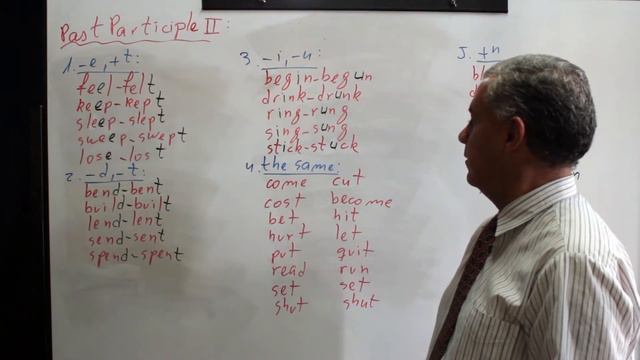 Past Participle II:
1. -e, +t:
feel-felt
keep-kept
sleep-slept
sweep-swept
lose-lost
2. -d, -t:
bend-bent
build-built
lend-lent
send-sent
spend-spent
3. -i, -u:
begin-begun
drink-drunk
ring-rung
sing-sung
stick-stuck
4. the same:
come cut
cost become
bet hit
hurt let
put quit
read run
set set
shut shut
5. +n